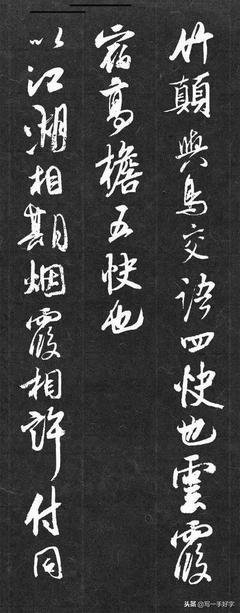 竹顛與鳥交語四快也雲霞
宿高檐五快也
以江湖相期烟霞相許付同
头条 @写一手好字